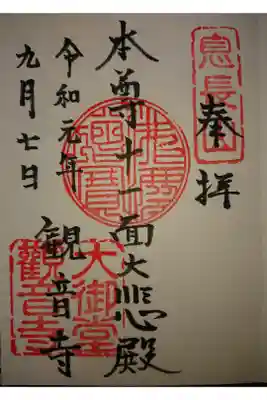 息長山
奉拝
本尊十一面大悲殿
令和元年
九月七日
観音寺
大御堂
觀音寺